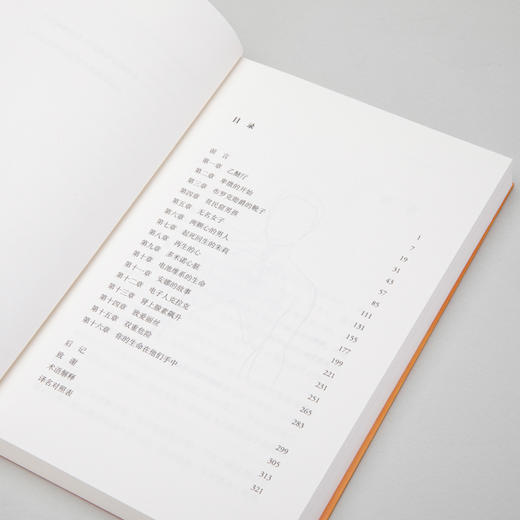 目 录
前 言 1
第一章 乙醚厅 7
第二章 卑微的开始 19
第三章 布罗克勋爵的靴子 31
第四章 贫民窟男孩 43
第五章 无名女子 57
第六章 两颗心的男人 85
第七章 起死回生的朱莉 111
第八章 再生的心 131
第九章 多米诺心脏 155
第十章 电池维系的生命 177
第十一章 安娜的故事 199
第十二章 电子人克拉克 221
第十三章 肾上腺素飙升 231
第十四章 致爱丽丝 251
第十五章 双重危险 265
第十六章 你的生命在他们手中 283
后 记 299
致 谢 305
术语解释 313
译名对照表 321